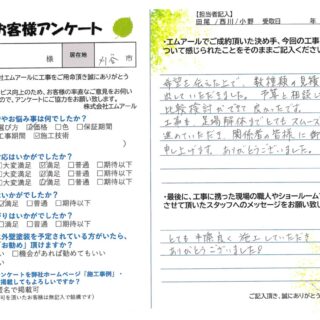 お客様アンケート
様 居住地 刈谷 市
社エムアールに工事をご用命頂き誠にありがとう
ービス向上のため、お客様の率直なご意見をお伺い
ので、アンケートにご協力をお願い致します。
株式会社エムアール
やお悩み事は何でしたか?
選び方 ☑価格 □色 □保証期間
工事期間 ☑施工技術
対応はいかがでしたか?
□大変満足 ☑満足 □普通 □期待以下
□大変満足 ☑満足 □普通 □期待以下
はいかがでしたか?
□満足 □普通 □期待以下
がりはいかがでしたか?
□満足 □普通 □期待以下
に外壁塗装を予定されている方がいたら、
「お勧め」頂けますか?
い □機会があれば勧めてもいい
い
アンケートを弊社ホームページ「施工事例」・
に掲載してもよろしいですか?
匿名で掲載可
可を頂いたお客様は無記入で結構です)
【担当者記入】
田尾 /西川/小野 受取日 年
・エムアールでご成約頂いた決め手、今回の工事
ついて感じられたことをそのままご記入ください
希望を伝えた上で、数種類の見積
出していただきました。予算と相談し
比較検討ができて良かったです。
工事も足場解体までとてもスムーズ
進めていただき、関係者の皆様に御
申し上げます。ありがとうございました。
・最後に、工事に携った現場の職人やショールーム
させて頂いたスタッフへのメッセージをお願い致
とても手際良く施工していただき
ありがとうございました!
ご記入頂き、誠にありがとう